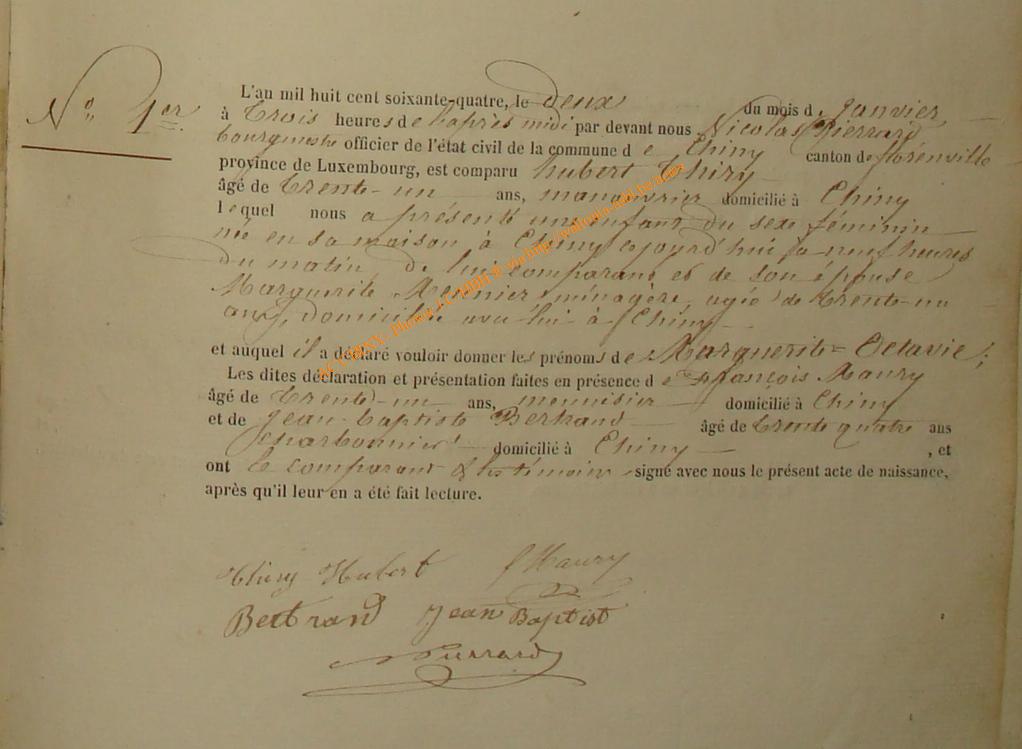 N° 1er
L'an mil huit cent soixante-quatre, le deux du mois d janvier
à trois heures de l'après midi par devant nous Nicolas Pierrard
bourgmestre officier de l'état civil de la commune de Chiny canton de florenville
province de Luxembourg, est comparu hubert Thiry
âgé de trente-un ans, manouvrier domicilié à Chiny
lequel nous a présenté un enfant du sexe féminin
née en sa maison à Chiny cejourd'hui à neuf heures
du matin, de lui comparant et de son épouse
Marguerite ménagère, agée de trente-un
ans, domiciliée avec lui à Chiny
et auquel il a déclaré vouloir donner les prénoms de Marguerite=Octavie;
Les dites déclaration et présentation faites en présence de françois Maury
âgé de trente-un ans, menuisier domicilié à Chiny
et de Jean baptiste Bertrand âgé de trente quatre ans
charbonnier domicilié à Chiny , et
ont le comparant & les témoins signé avec nous le présent acte de naissance,
après qu'il leur en a été fait lecture.
Thiry Hubert f Maury
Bertrand Jean Baptist
NPierrard